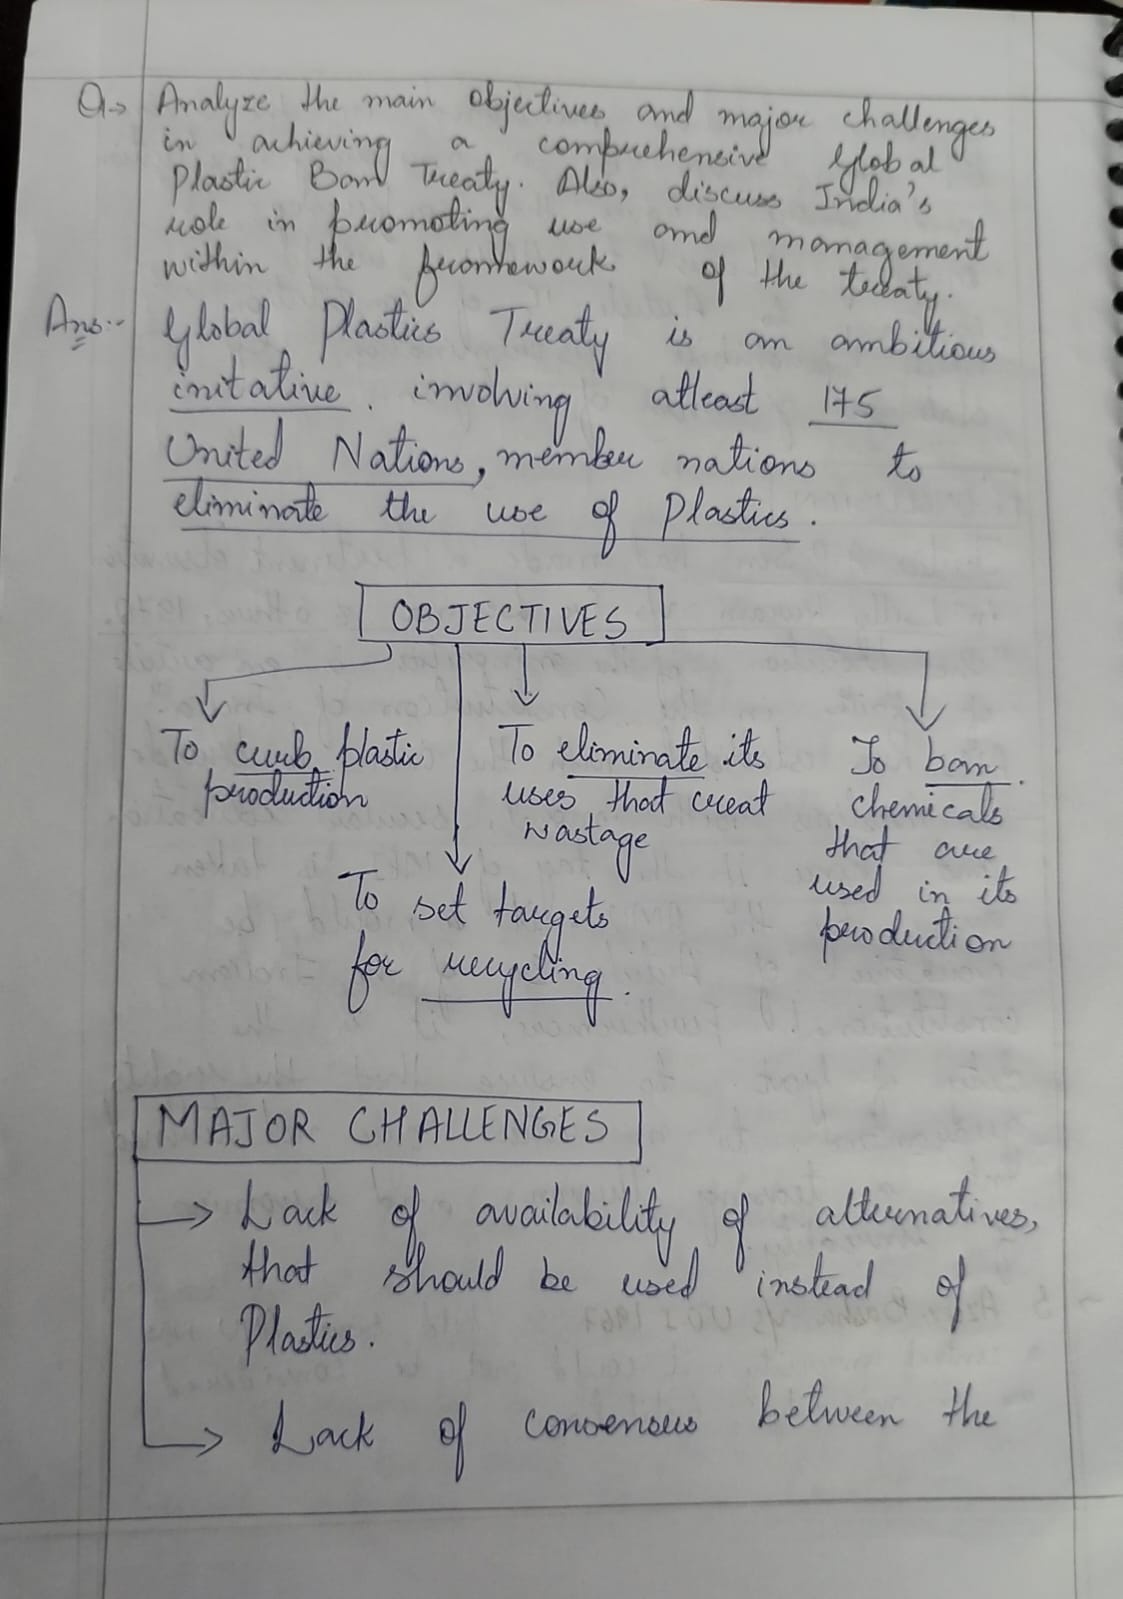 Q→ Analyze the main objectives and major challenges
in achieving a comprehensive Global
Plastic Ban Treaty. Also, discuss India's
role in promoting use and management
within the framework of the treaty.
Ans:- Global Plastics Treaty is an ambitious
initative. involving atleast 175
United Nations, member nations to
eliminate the use of Plastics.
OBJECTIVES
To curb plastic
production
To set targets
for recycling.
To eliminate its
uses that creat
wastage
To ban
chemicals
that are
used in its
production
MAJOR CHALLENGES
→ Lack of availability of alternatives,
that should be used instead of
Plastics.
→ Lack of consensus between the